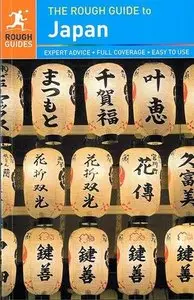 ROUGH
GUIDES
THE ROUGH GUIDE to
Japan
EXPERT ADVICE • FULL COVERAGE • EASY TO USE
まつもと
千賀福
叶恵
花折双光
花折双光
花傳
鍵善
鍵善
鍵善